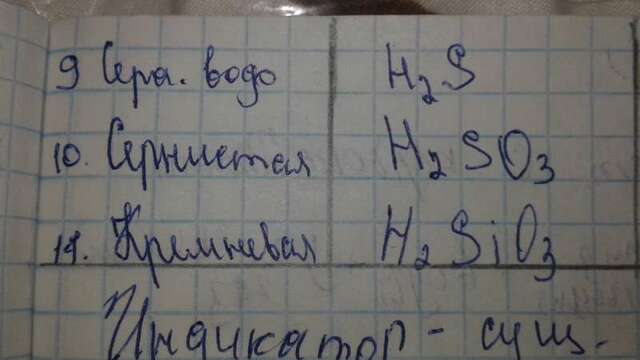 9 Сера. водо H₂S
10. Сернистая H₂SO₃
11. Кремневая H₂SiO₃
Индикатор - сущ.